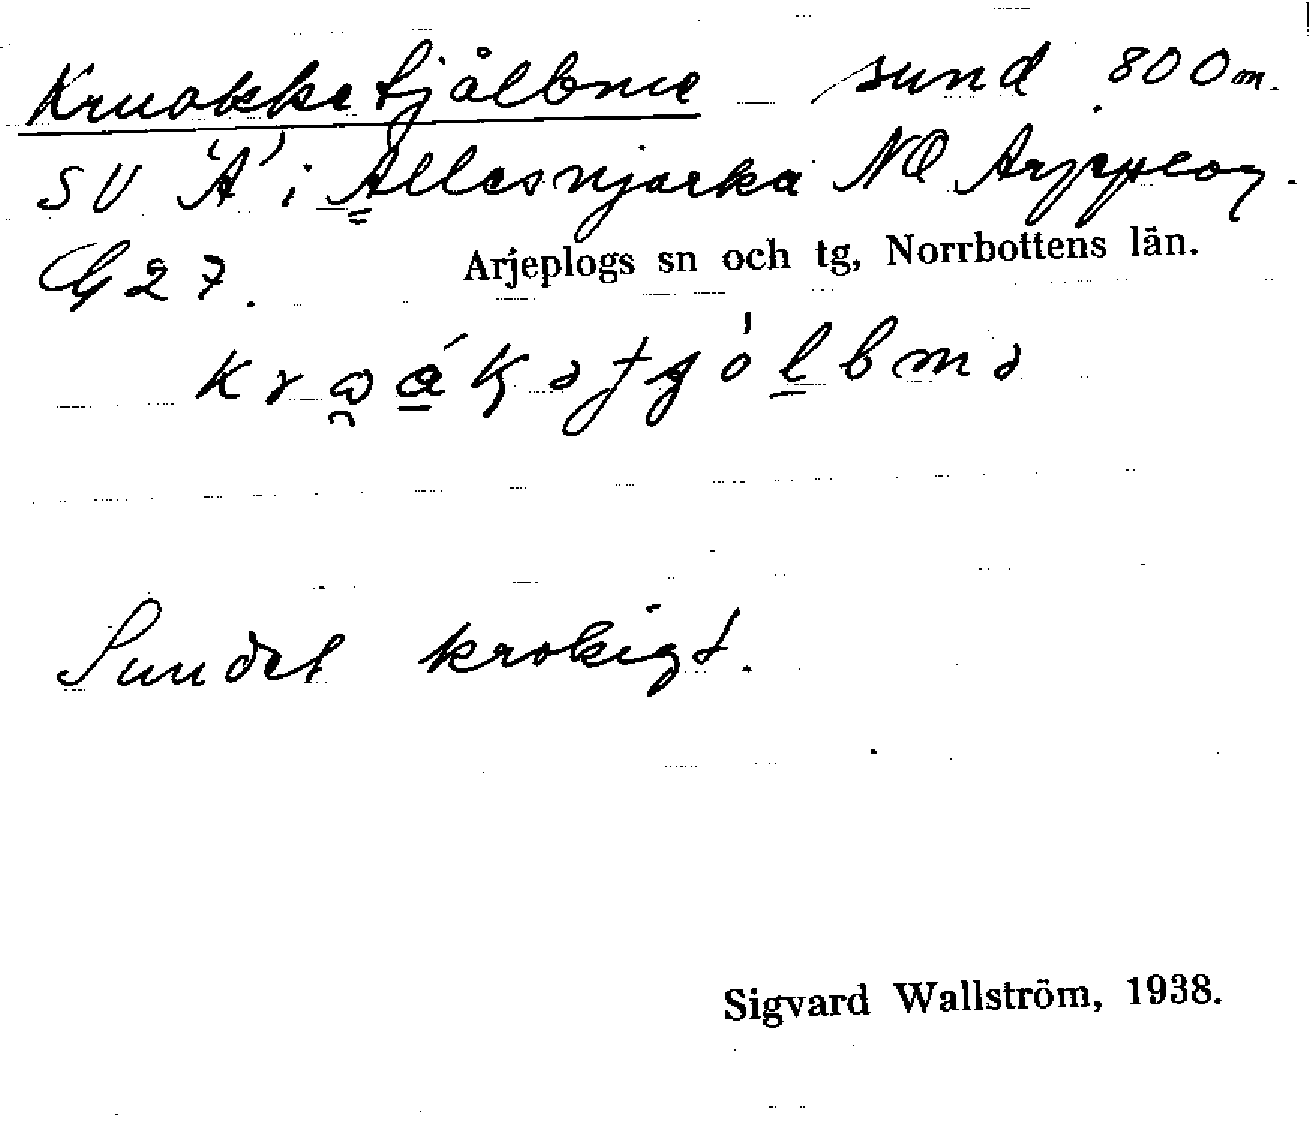 Kruokketjålbme sund 800m.
SV 'A' i Allesnjarka NO Arjeplog.
G27.
Arjeplogs sn och tg, Norrbottens län.
Sundet krokigt.
Sigvard Wallström, 1938.